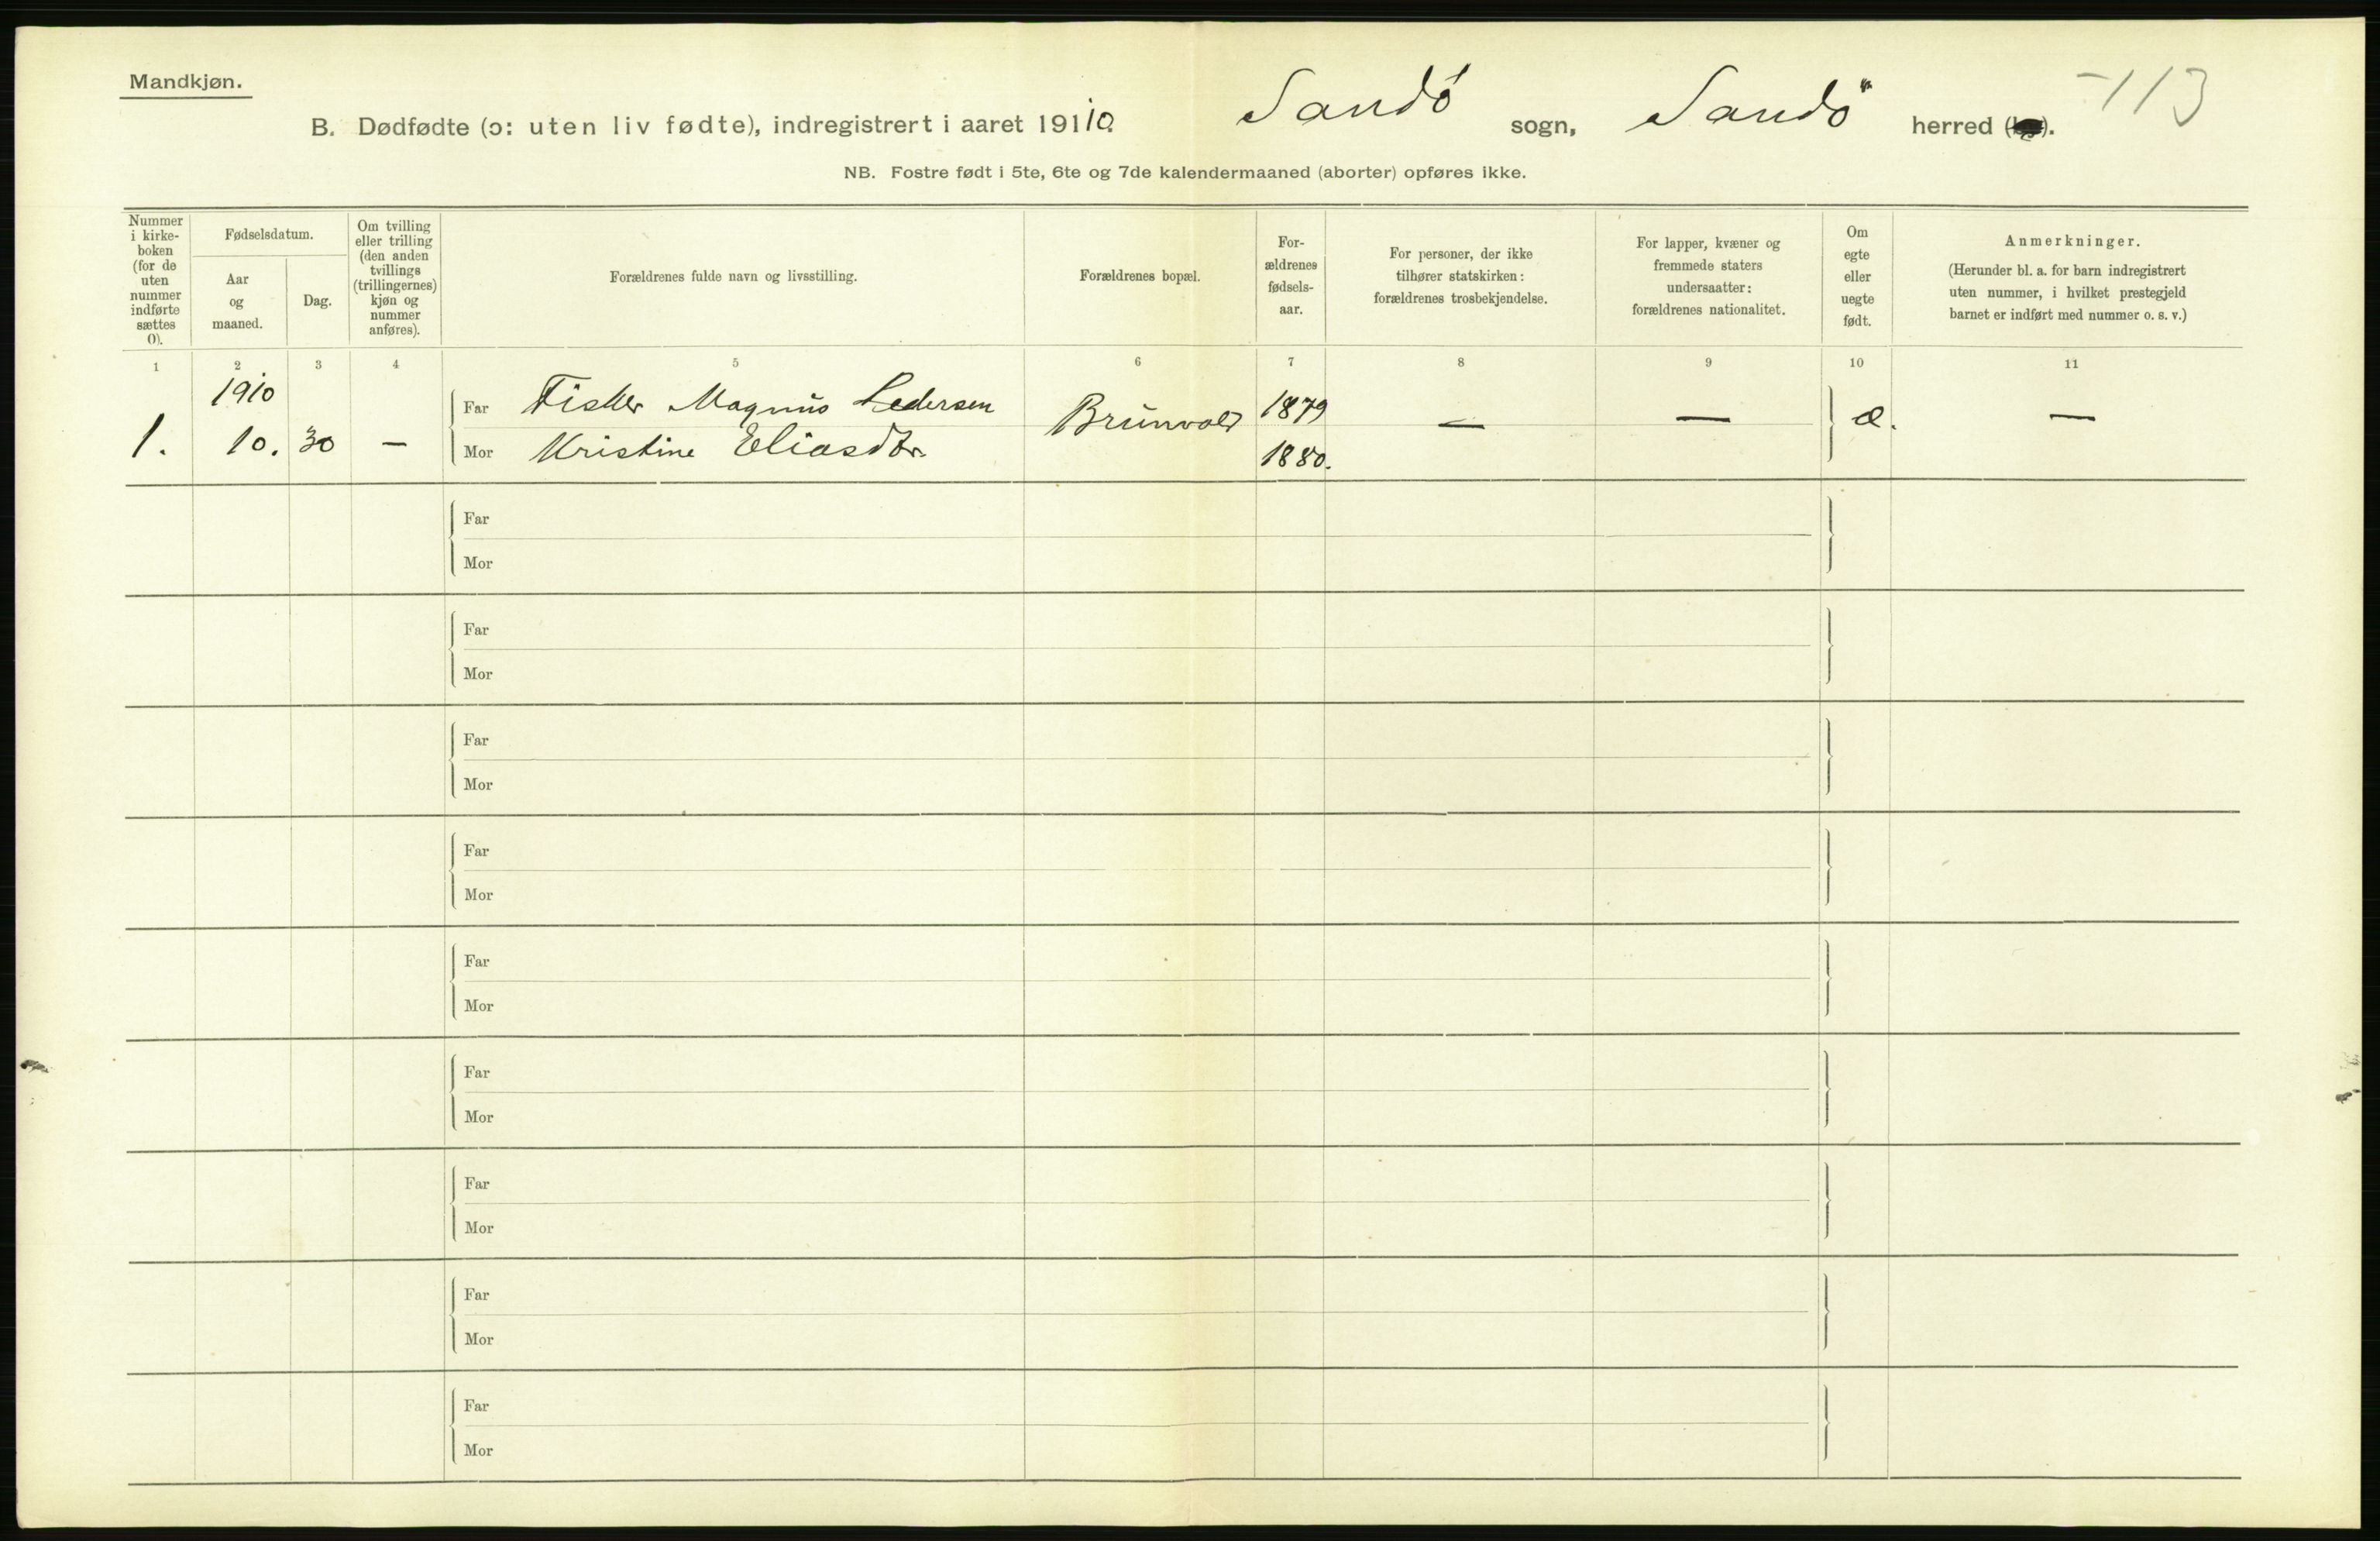 Mandkjøn.
B. Dødfødte (ɔ: uten liv fødte), indregistrert i aaret 19110. Sandö sogn, Sandö herred ( ).
-113
NB. Fostre født i 5te, 6te og 7de kalendermaaned (aborter) opføres ikke.
Nummer
i kirke-
boken
(for de
uten
nummer
indførte
sættes
0).
Fødselsdatum.
Aar
og
maaned.
Dag.
Om tvilling
eller trilling
(den anden
tvillings
(trillingernes)
kjøn og
nummer
anføres).
Forældrenes fulde navn og livsstilling.
Forældrenes bopæl.
For-
ældrenes
fødsels-
aar.
For personer, der ikke
tilhører statskirken:
forældrenes trosbekjendelse.
For lapper, kvæner og
fremmede staters
undersaatter:
forældrenes nationalitet.
Om
egte
eller
uegte
født.
Anmerkninger.
(Herunder bl. a. for barn indregistrert
uten nummer, i hvilket prestegjeld
barnet er indført med nummer o. s. v.)
1 2 3 4 5 6 7 8 9 10 11
1910
Far Fisker Magnus Pedersen Brunvold 1879 — — æ. —
1. 10. 30 — Mor Kristine Eliasdtr. 1880.
Far
Mor
Far
Mor
Far
Mor
Far
Mor
Far
Mor
Far
Mor
Far
Mor
Far
Mor
Far
Mor